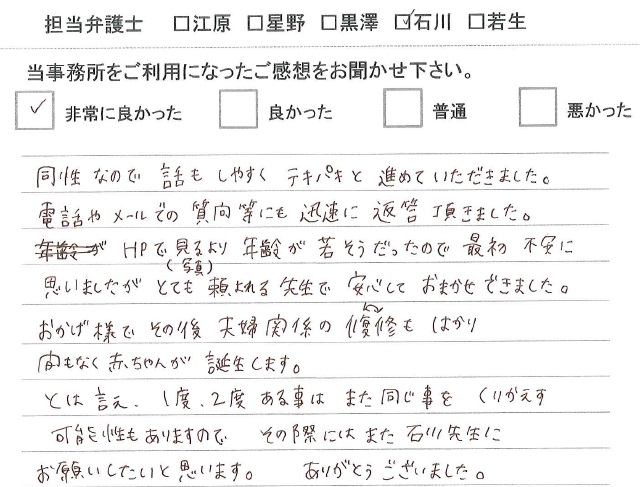 担当弁護士 □江原 □星野 □黒澤 ☑石川 □若生
当事務所をご利用になったご感想をお聞かせ下さい。
☑ 非常に良かった □ 良かった □ 普通 □ 悪かった
同性なので 話も しやすく テキパキと 進めていただきました。
電話や メールでの 質問等にも 迅速に 返答 頂きました。
年齢が HPで見るより 年齢が 若そうだったので 最初 不安に
(写真)
思いましたが とても 頼れる先生で 安心して おまかせできました。
おかげ様で その後 夫婦関係の 復修も はかり
間もなく 赤ちゃんが 誕生します。
とは言え、1度、2度 ある事は また 同じ事を くりかえす
可能性もありますので その際には また 石川先生に
お願いしたいと思います。 ありがとうございました。